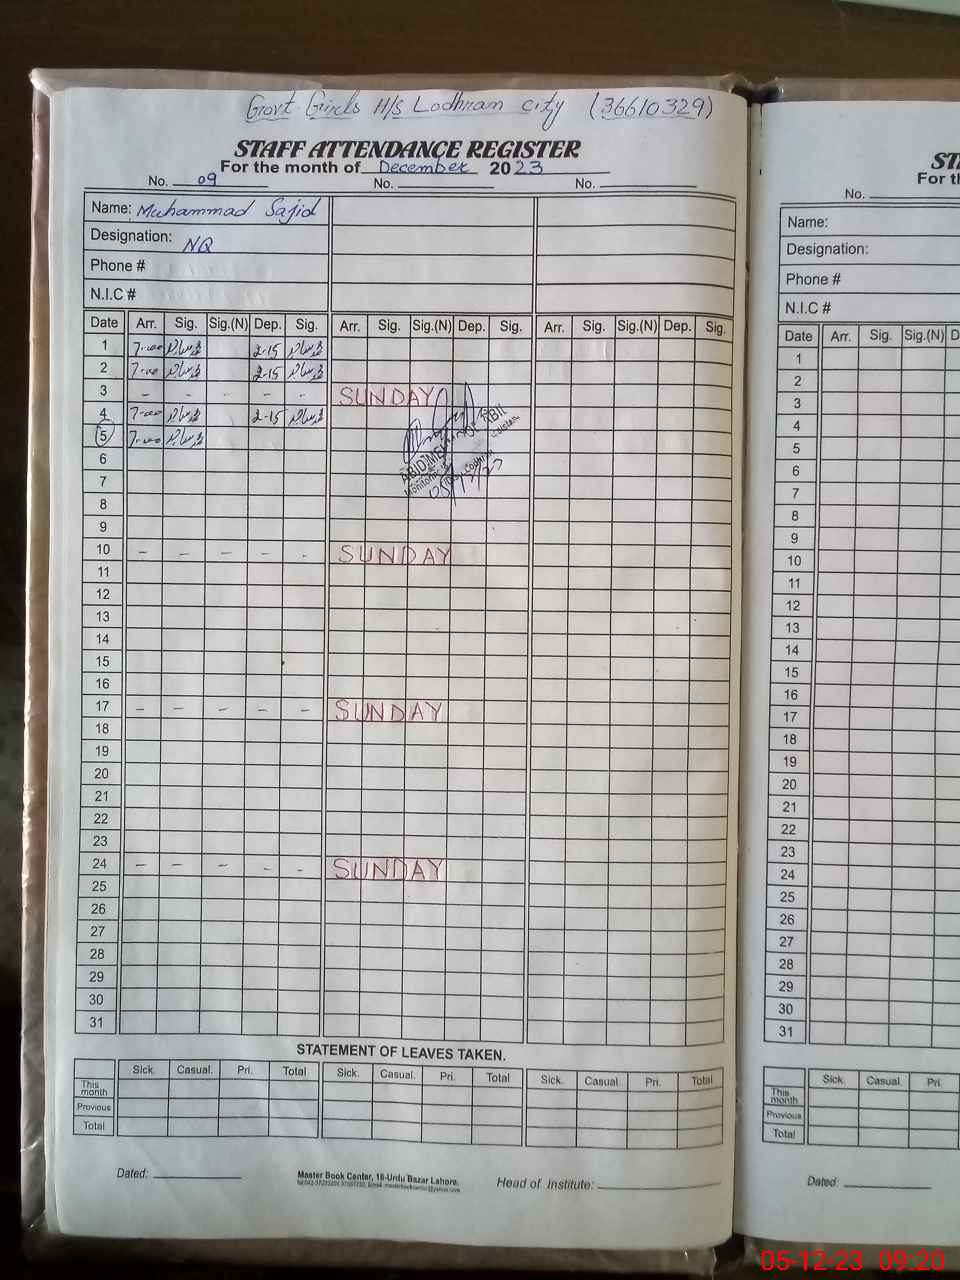 Govt. Girls H/S Lodhran city (36610329)
STAFF ATTENDANCE REGISTER
For the month of December 2023
No. 09 No. No.
Name: Muhammad Sajid
Designation: NQ
Phone #
N.I.C #
Date Arr. Sig. Sig.(N) Dep. Sig. Arr. Sig. Sig.(N) Dep. Sig. Arr. Sig. Sig.(N) Dep. Sig.
1 7-00 2-15
2 7-00 2-15
3 - - - - - SUNDAY
4 7-00 2-15
5 7-00
6
7
8
9
10 - - - - - SUNDAY
11
12
13
14
15
16
17 - - - - - SUNDAY
18
19
20
21
22
23
24 - - - - - SUNDAY
25
26
27
28
29
30
31
STATEMENT OF LEAVES TAKEN.
Sick. Casual. Pri. Total Sick. Casual. Pri. Total Sick. Casual Pri. Total
This month
Previous
Total
Dated: Master Book Center, 18-Urdu Bazar Lahore. Head of Institute:
ST
For th
No.
Name:
Designation:
Phone #
N.I.C #
Date Arr. Sig. Sig.(N) D
1
2
3
4
5
6
7
8
9
10
11
12
13
14
15
16
17
18
19
20
21
22
23
24
25
26
27
28
29
30
31
Sick. Casual. Pri.
This month
Previous
Total
Dated:
05-12-23 09:20